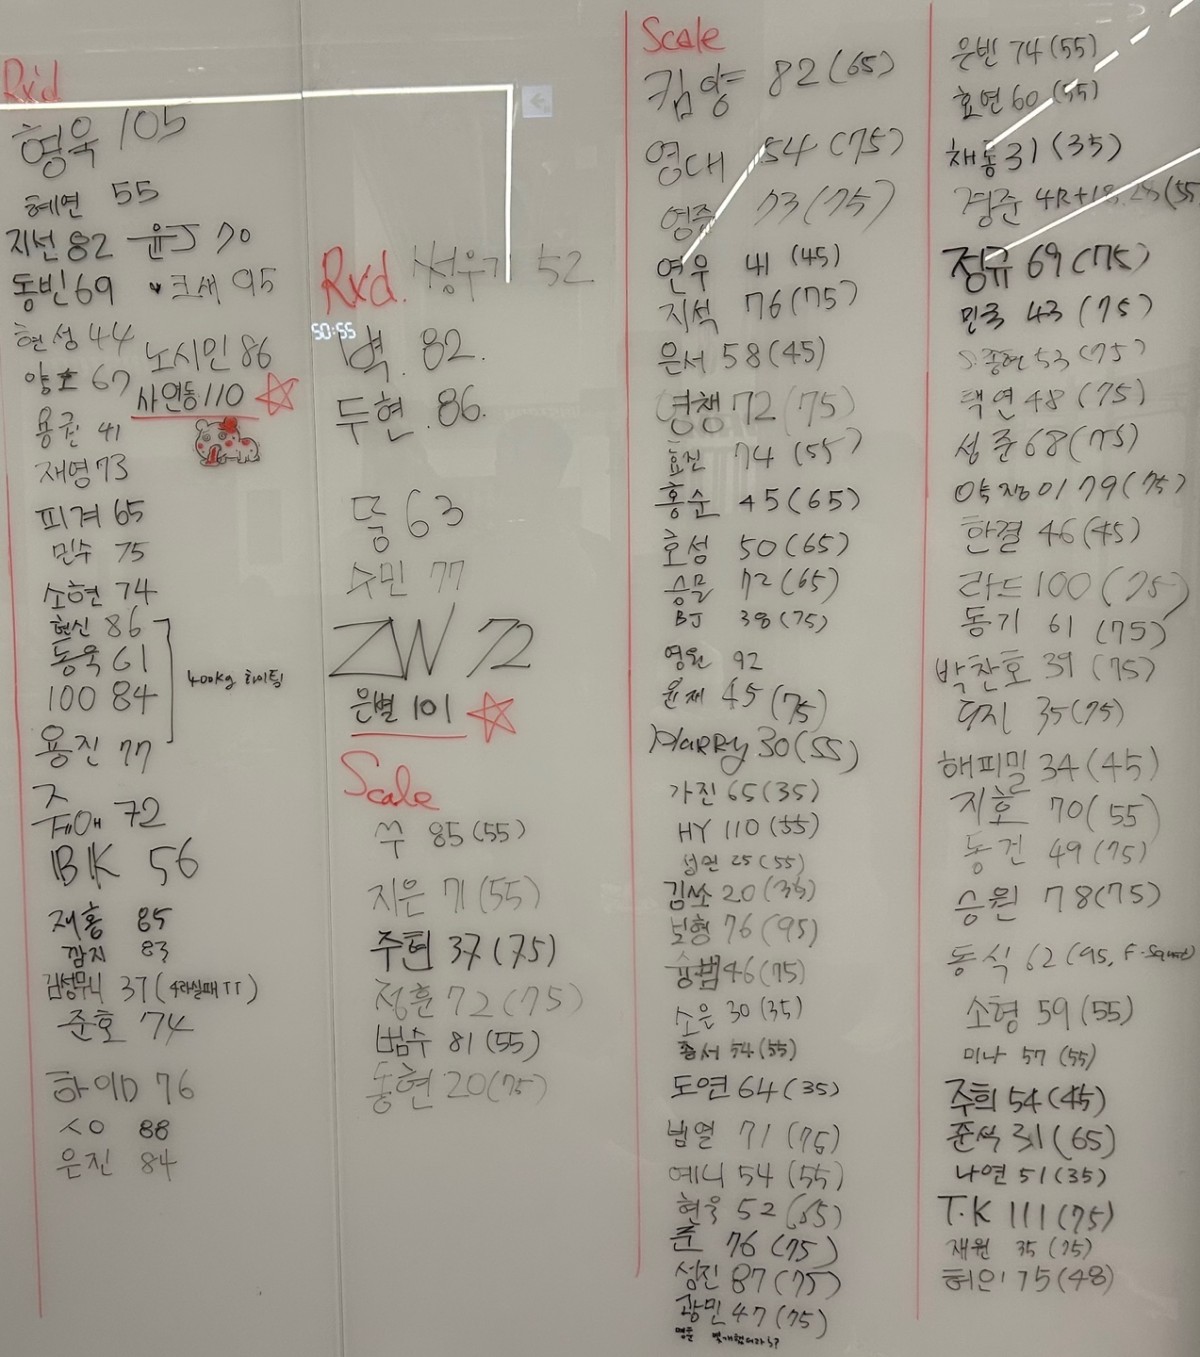 Rx'd
형욱 105
혜연 55
지선 82 윤J 70
동빈 69 크새 95
현성 44
노시민 86
양호 67
사인동 110
용권 41
재영 73
피겨 65
민수 75
소현 74
현신 86
동욱 61
400kg 화이팅
100 84
용진 77
쥬 72
BK 56
재홍 85
깜지 83
김성무니 37 (4라실패TT)
준호 74
하이D 76
ㅅㅇ 88
은진 84
Rx'd. 성우 52
50:55
벽. 82.
두현. 86.
뚱 63
수민 77
ZW 72
은별 101
Scale
쑤 85 (55)
지은 71 (55)
주현 37 (75)
정훈 72 (75)
범수 81 (55)
동현 20 (75)
Scale
킴양 82 (65)
영대 54 (75)
영준 73 (75)
연우 41 (45)
지석 76 (75)
은서 58 (45)
영챔 72 (75)
효진 74 (55)
홍순 45 (65)
호성 50 (65)
승믈 72 (65)
BJ 38 (75)
영원 92
윤재 45 (75)
HARRy 30 (55)
가진 65 (35)
HY 110 (55)
섭민 25 (55)
김쏘 20 (35)
보형 76 (95)
승범 46 (75)
소은 30 (35)
홍서 54 (55)
도연 64 (35)
범열 71 (75)
예니 54 (55)
현욱 52 (65)
준 76 (75)
성진 87 (75)
광민 47 (75)
명훈 몇개했더라ㅎ?
은빈 74 (55)
효연 60 (55)
채동 31 (35)
경준 4R+18. (55
정규 69 (75)
민국 43 (75)
종현 53 (75)
택연 48 (75)
성준 68 (75)
약쟁이 79 (75)
한결 46 (45)
라드 100 (75)
동기 61 (75)
박찬호 39 (75)
우진 35 (75)
해피밀 34 (45)
지호 70 (55)
동건 49 (75)
승원 78 (75)
동식 62 (95, F-Squat)
소형 59 (55)
미나 57 (55)
주희 54 (45)
준석 31 (65)
나연 51 (35)
T.K 111 (75)
재원 35 (75)
허인 75 (48)